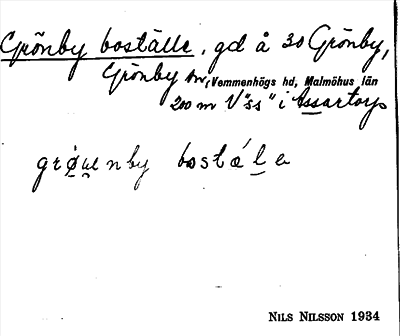 Grönby boställe, gd å 30 Grönby,
Grönby sn, Vemmenhögs hd, Malmöhus län
200 m V "ss" i Assartorp
grøu̯enby bostálɐ
NILS NILSSON 1934